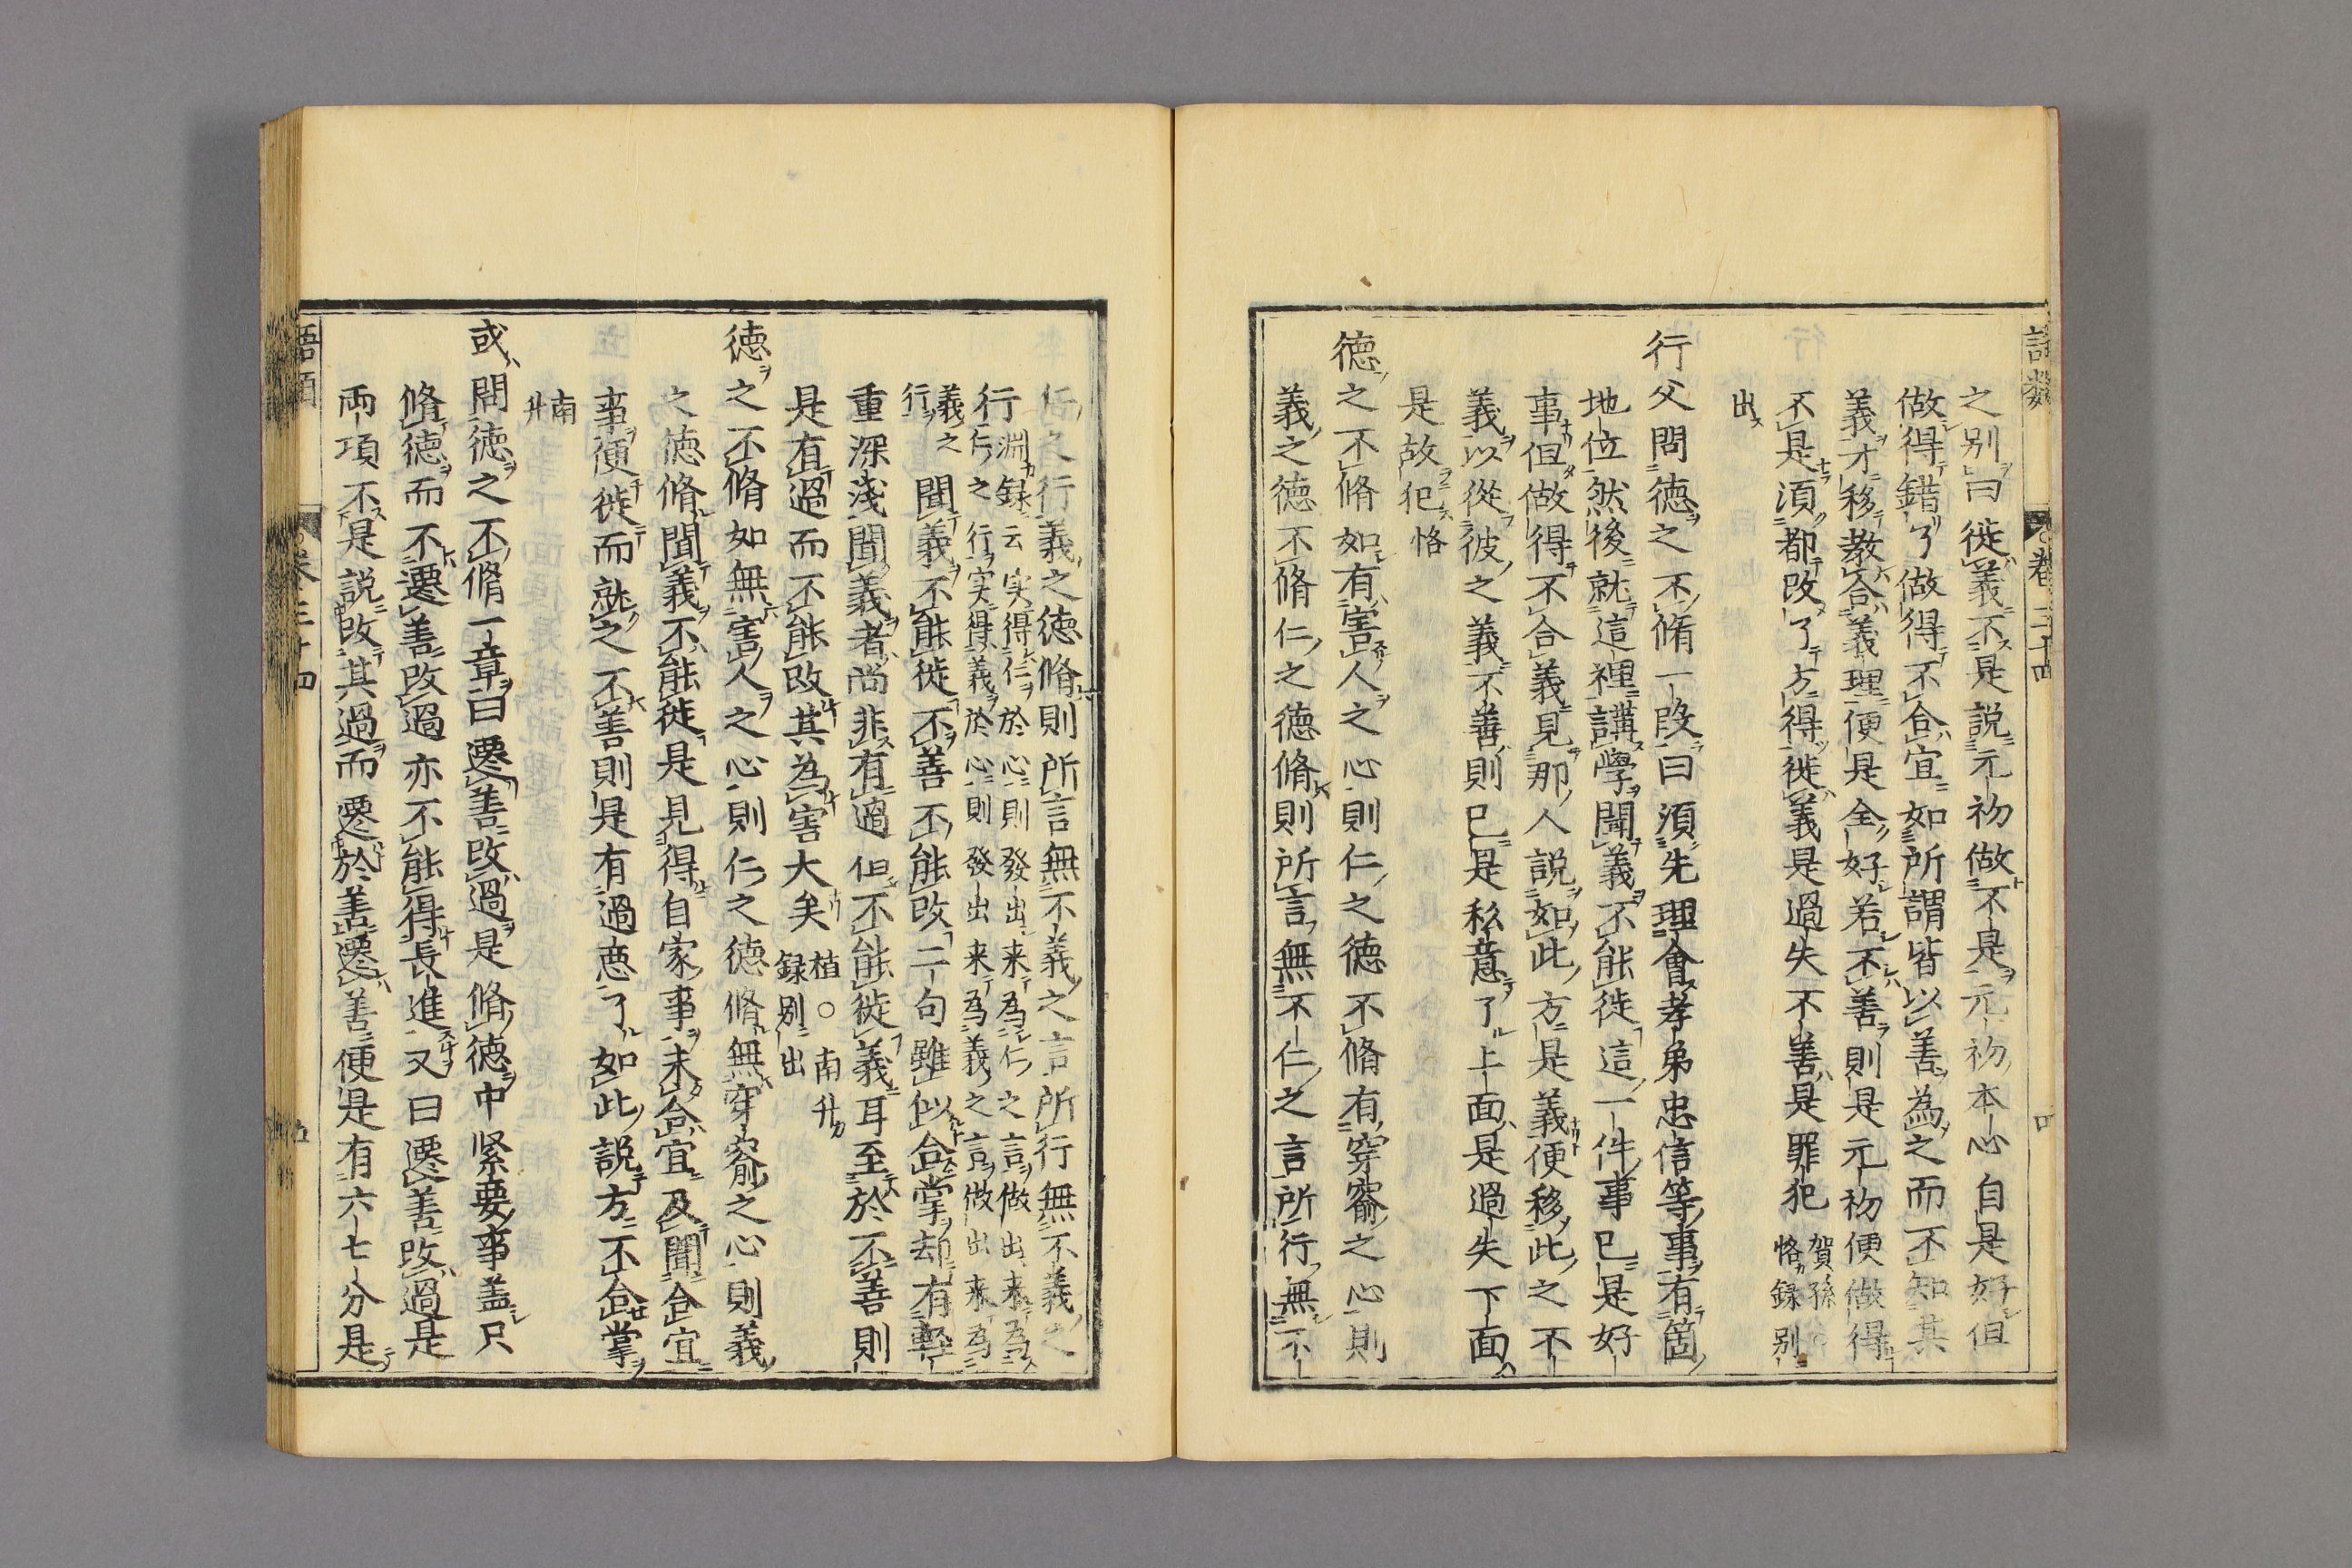 語類 卷三十四 四
之别曰徙義不是説元初做不是元初本心自是好但
做得錯了做得不合宜如所謂皆以善為之而不知其
義才移教合義理便是全好若不善則是元初便做得
不是須都改了方得徙義是過失不善是罪犯 賀孫○恪録别
出
行父問德之不脩一段曰須先理會孝弟忠信等事有箇
地位然後就這裡講學聞義不能徙這一件事已是好
事但做得不合義見那人説如此方是義便移此之不
義以從彼之義不善則已是私意了上面是過失下面
是故犯恪
德之不脩如有害人之心則仁之德不脩有穿窬之心則
義之德不脩仁之德脩則所言無不仁之言所行無不
仁之行義之德脩則所言無不義之言所行無不義之
行 淵録云実得仁於心則發出来為仁之言做出来為
仁之行実得義於心則發出来為義之言做出来為
義之
行 聞義不能徙不善不能改二句雖似合掌却有輕
重深浅聞義者尚非有過但不能徙義耳至於不善則
是有過而不能改其為害大矣 植○南升録别出
德之不脩如無害人之心則仁之德脩無穿窬之心則義
之德脩聞義不能徙是見得自家事未合宜及聞合宜
事便徙而就之不善則是有過悪了如此説方不合掌
南升
或問德之不脩一章曰遷善改過是脩德中緊要事盖只
脩德而不遷善改過亦不能得長進又曰遷善改過是
両項不是説改其過而遷於善遷善便是有六七分是
語類 卷三十四 五